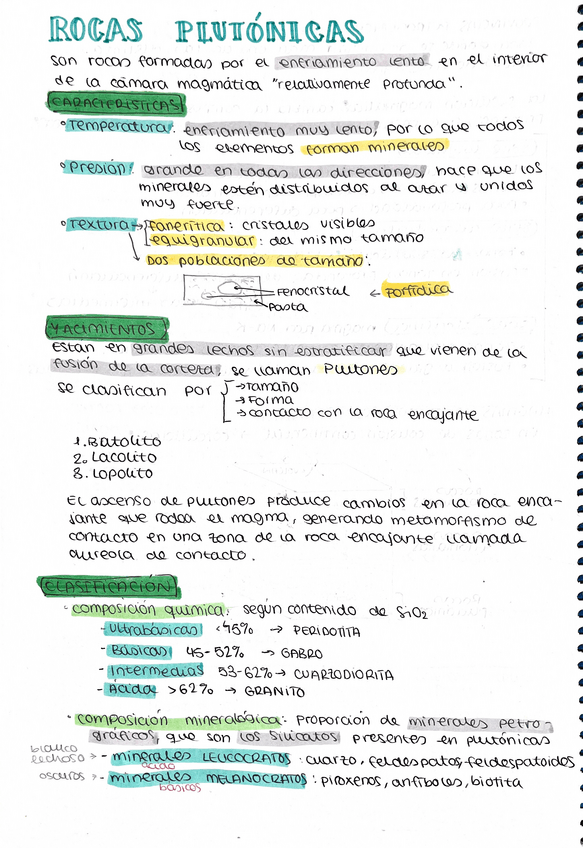 ROCAS PLUTÓNICAS
son rocas formadas por el enfriamiento lento en el interior
de la cámara magmática "relativamente profunda".
CARACTERÍSTICAS
° Temperatura: enfriamiento muy lento, por lo que todos
los elementos forman minerales
° Presión: grande en todas las direcciones, hace que los
minerales estén distribuidos al azar y unidos
muy fuerte.
° Textura → fanerítica: cristales visibles
equigranular: del mismo tamaño
Dos poblaciones de tamaño:
Fenocristal ← Porfídica
Pasta
YACIMIENTOS
Están en grandes lechos sin estratificar que vienen de la
fusión de la corteza, se llaman Plutones
se clasifican por → Tamaño
→ Forma
→ contacto con la roca encajante
1. Batolito
2. Lacolito
3. Lopolito
El ascenso de plutones produce cambios en la roca enca-
jante que rodea el magma, generando metamorfismo de
contacto en una zona de la roca encajante llamada
aureola de contacto.
CLASIFICACIÓN
· composición química: según contenido de SiO₂
- Ultrabásicas <45% → PERIDOTITA
- Básicas 45-52% → GABRO
- Intermedias 53-62% → CUARZODIORITA
- Ácida >62% → GRANITO
· composición mineralógica: proporción de minerales petro-
gráficos, que son los silicatos presentes en plutónicas
blanco
lechoso > - minerales LEUCOCRATOS: cuarzo, feldespatos, feldespatoides
ácido
oscuros > - minerales MELANOCRATOS: piroxenos, anfíboles, biotita
básicos